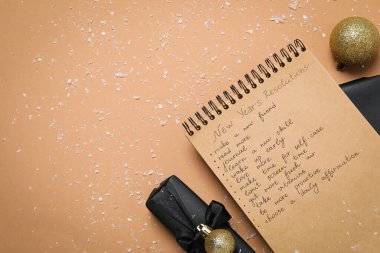 New Year's Resolutions
- make a new friend
- read more
- journal
- learn a new skill
- wake up early
- love more
- make time for self care
- limit screen time
- get more fresh air
- take vitamins
- be more proactive
- choose a daily affirmation